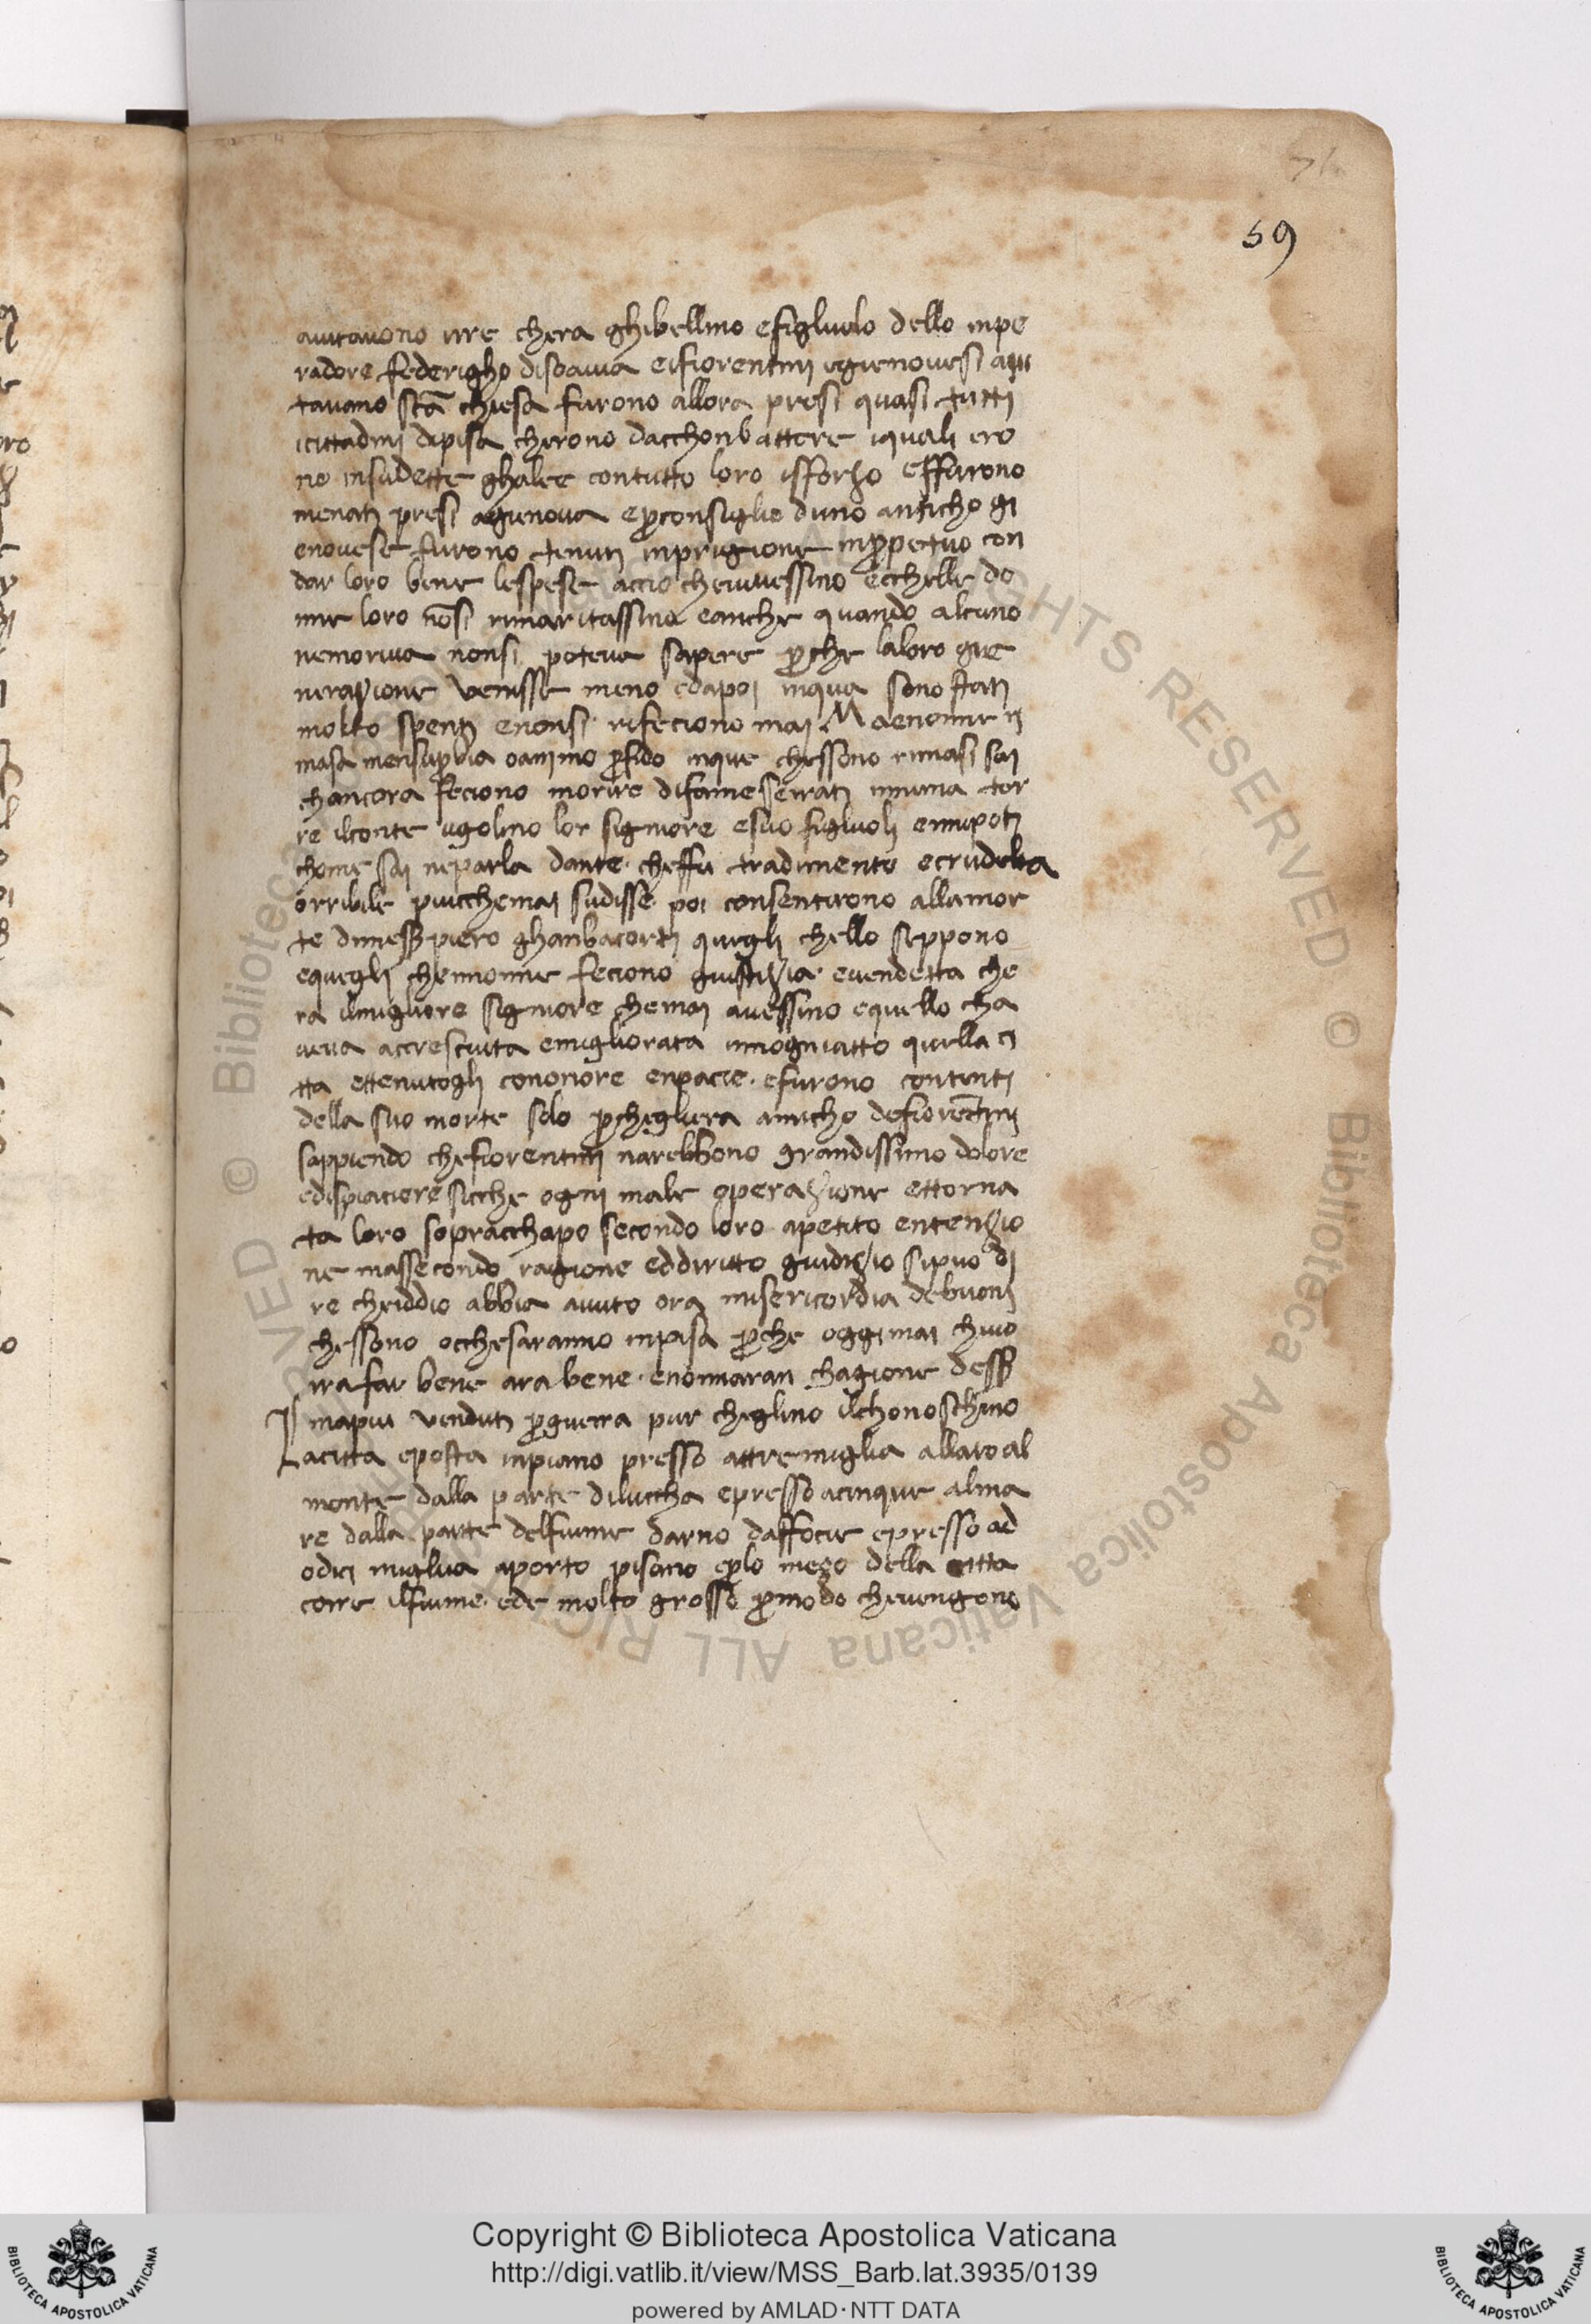 59
aiutavono irre chera ghibellino efigluolo dello inpe
radore federigho disoavia eifiorentini egienovesi aiu
tavano sc̄a chiesa furono allora presi quasi tutti
icittadini dipisa cherono dacchonbattere iquali ero
no insudette ghalee contutto loro isforzo effurono
menati presi agienova eꝑconsiglio duno anticho gi
enovese furono tenuti inprigione inꝑpetuo con
dar loro bene lespese accio chevivessino ecchelle do
nne loro nōsi rimaritassino eanche quando alcuno
nemoriva nonsi poteva sapere ꝑche laloro gie
nerazione venisse meno edapoi inqua sono stati
molto spenti enonsi rifeciono mai
masa mensuꝑbia oanimo ꝑfido inque chessono rimasi sai
chancora feciono morire difame serrati innuna tor
re ilconte ugolino lor signiore esuo figluoli ennipoti
chome sai neparla dante cheffu tradimento ecrudelta
orribile piucchemai sudisse poi consentirono allamor
te dimess piero ghanbacorti quegli chello seppono
equegli chennonne feciono giustizia evendetta che
ra ilmigliore signiore chemai avessino equello cha
veva accresciuta emigliorata innogniatto quella ci
tta ettenutogli cononore enpacie efurono contenti
della suo morte solo ꝑchegliera amicho defiorētini
sappiendo chefiorentini narebbono grandissimo dolore
edispiaciere sicche ogni male operazione ettorna
ta loro sopracchapo secondo loro apetito entenzio
ne massecondo ragione eddiritto giudizio sipuo di
re cheiddio abbia avuto ora misericordia debuoni
chessono occhesaranno inpisa ꝑche oggimai chivo
rra far bene ara bene enonnaran chagione dess
mapiu venduti ꝑguerra pur cheglino ilchonoschino
Lacitta eposta inpiano presso attremiglia allatoal
monte dalla parte diluccha epresso acinque alma
re dalla parte delfiume darno daffocie epresso ad
odici miglia aporto pisano eꝑlo mezo della citta
corre ilfiume ede molto grosso ꝑmodo chevengono
Copyright © Biblioteca Apostolica Vaticana
http://digi.vatlib.it/view/MSS_Barb.lat.3935/0139
powered by AMLAD·NTT DATA